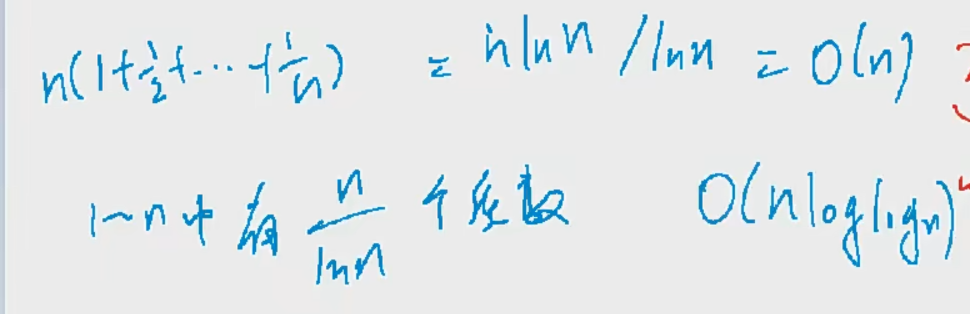 n(1+1/2+...+1/n) = n ln n / ln n = O(n)
1~n中有 n/ln n 个质数 O(n log log n)